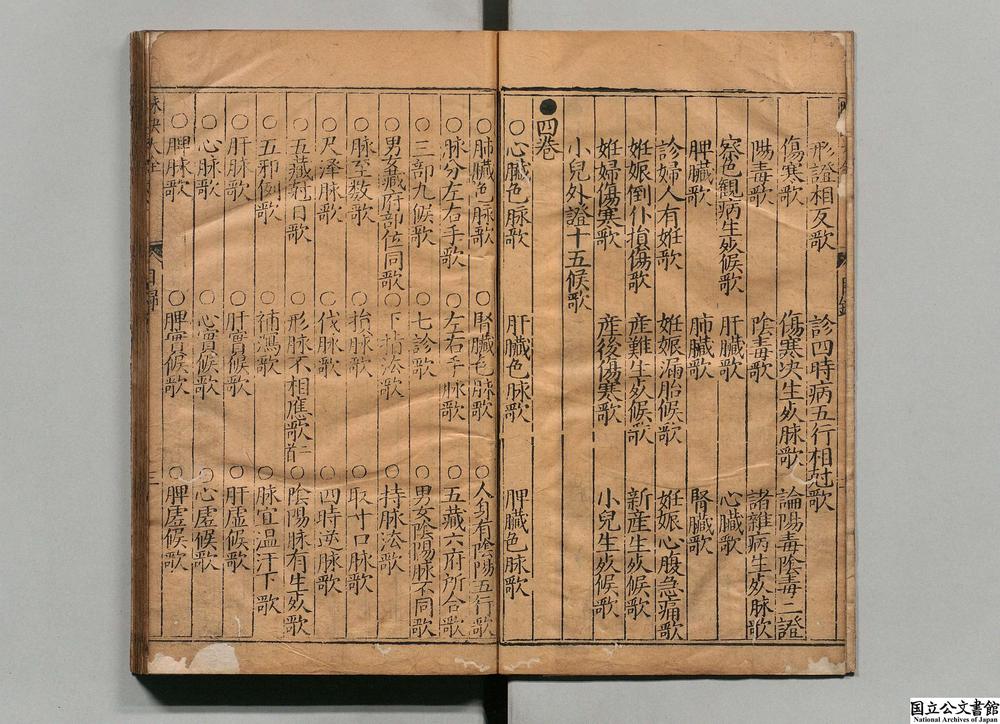 形證相反歌 診四時病五行相尅歌
傷寒歌 傷寒决生死脉歌 論陽毒陰毒二證
陽毒歌 陰毒歌 諸雜病生死脉歌
察色觀病生死候歌 肝臓歌 心臓歌
脾臓歌 肺臓歌 腎臓歌
診婦人有妊歌 妊娠漏胎候歌 妊娠心腹急痛歌
妊娠倒仆損傷歌 産難生死候歌 新産生死候歌
妊婦傷寒歌 産後傷寒歌 小兒生死候歌
小兒外證十五候歌
●四卷
○心臓色脉歌 肝臓色脉歌 脾臓色脉歌
○肺臓色脉歌 ○腎臓色脉歌 ○人身有陰陽五行歌
○脉分左右手歌 ○左右手脉歌 ○五藏六府所合歌
○三部九候歌 ○七診歌 ○男女陰陽脉不同歌
○男女藏府部位同歌 ○下指法歌 ○持脉法歌
○脉至数歌 ○指脉歌 ○取寸口脉歌
○尺澤脉歌 ○伐脉歌 ○四時逆脉歌
○五藏尅日歌 ○形脉不相應歌二首 ○陰陽脉有生死歌
○五邪倒歌 ○補瀉歌 ○脉宜温汗下歌
○肝脉歌 ○肝實候歌 ○肝虚候歌
○心脉歌 ○心實候歌 ○心虚候歌
○脾脉歌 ○脾實候歌 ○脾虚候歌
国立公文書館
National Archives of Japan